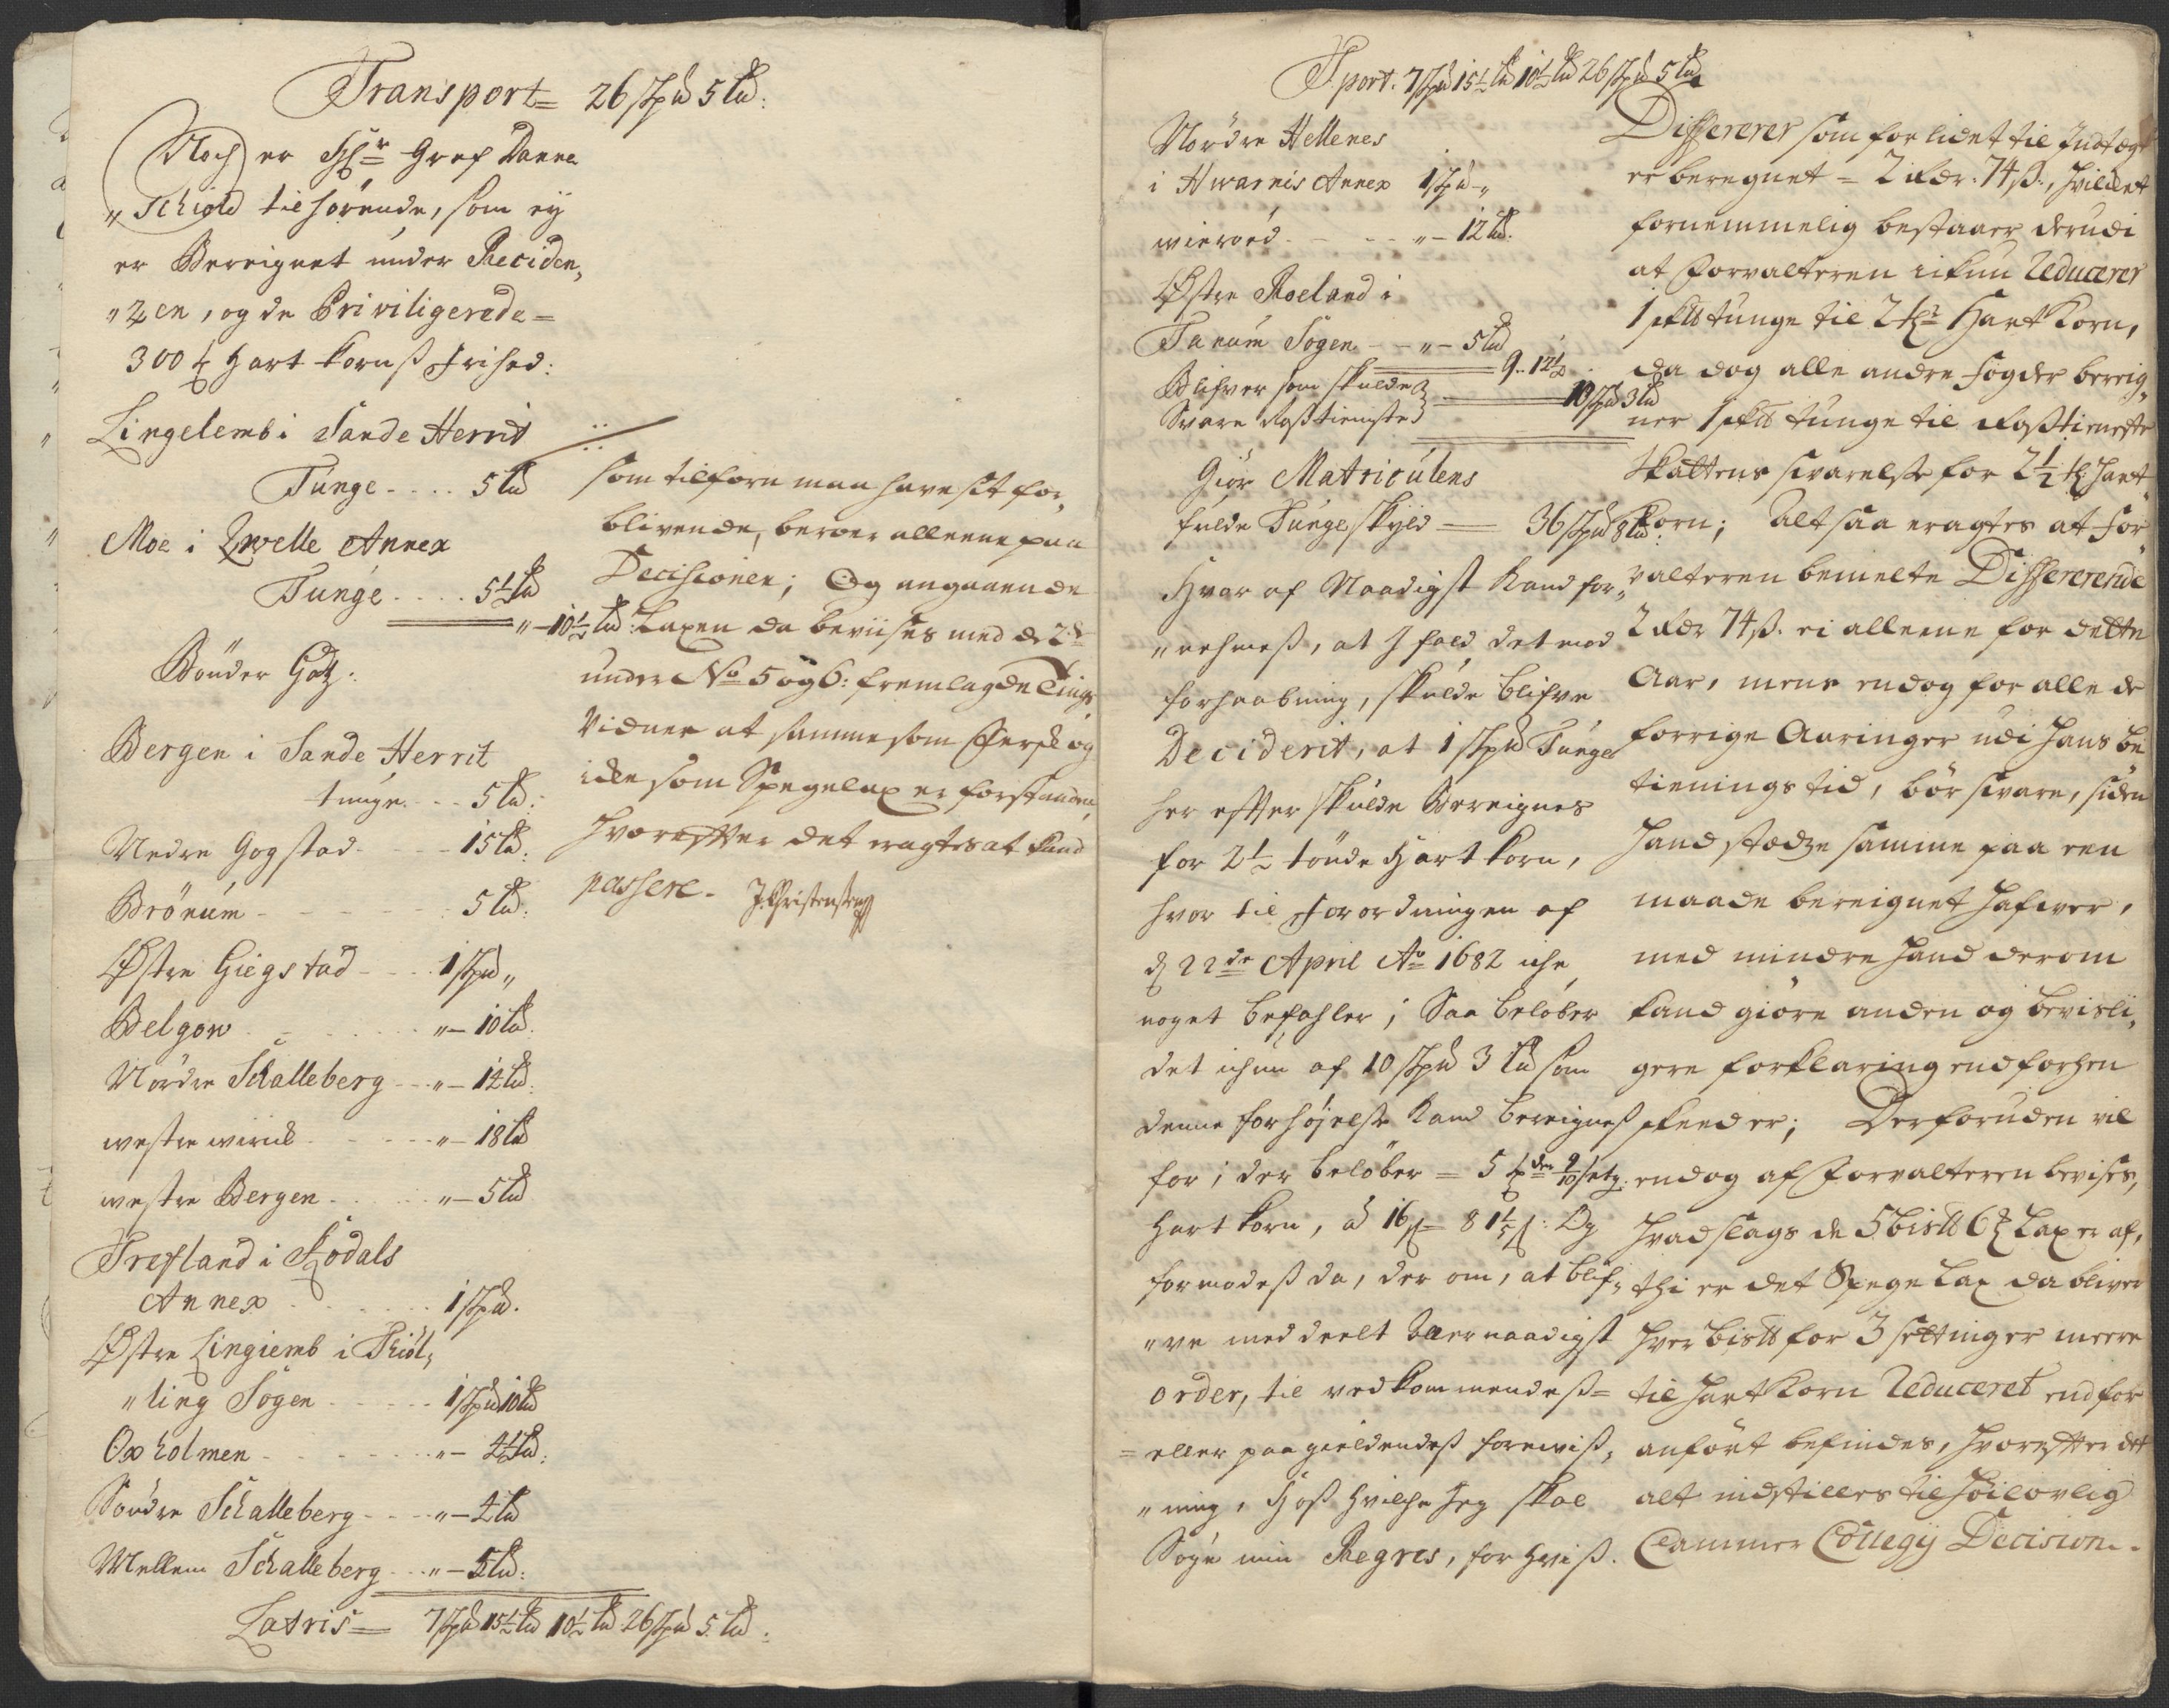 Transport= 26 skpd 5 Ld:
Noch er H:r Gref Danne
„Schiold tilhörende, som ey
er Bereignet under Reciden„
„zen, og de Priviligerede=
300 t Hart Kornß frihed:
Lingelemb i Sande Herrit
Tunge .... 5 Ld
Moe i Qvelle Annex
Tunge .... 5½ Ld
„—10½ Ld:
Bönder Gotz:
Bergen i Sande Herrit
tunge ... 5 Ld:
Nedre Gogstad - - - 15 Ld:
Brönum - - - - 5 Ld:
Østre Giegstad - - - 1 skpd „
Belgow - - - „— 10 Ld.
Nordre Schalleberg - - „— 12 Ld:
westre wirid - - - „— 18 Ld
westre Bergen - - - „— 5 Ld
Trefland i Skodals
Annex - - - 1 skpd.
Østre Lingiemb i Thiöl„
„ling Sogen - - - 1 skpd 10 Ld
Oxholmen - - - „— 4½ Ld:
Söndre Schalleberg - - - „— 4 Ld
Mellem Schalleberg - - „— 5 Ld:
Latris= 7 skpd 15½ Ld 10½ Ld 26 skpd 5 Ld:
som tilforn maa have sit for„
blivende, beroer alleene paa
Decisionen; Og angaaende
Laxen da beviises med de 2de
under No 5 og 6: fremlagde Tings
Vidner at samme som Fersk og
icke som Spegelax er forstanden,
hvorefter det eragtes at kand
passere. J. Christensen
Tport. 7 skpd 15½ Ld 10½ Ld 26 skpd 5 Ld
Nordre Hellenes
i Hwarnis Annex 1 skpd „
wieroed - - - „— 12 Ld.
Østre Roeland i
Tanum Sogen - - „— 5 Ld
9.. 12½
Blifver som skulde
Svare Roßtieneste = 10 skpd 3 Ld
Giör Matriculens
fulde Tunge skyld = 36 skpd 8 Ld.
Hvor af Naadigst kand for„
„nehmeß, at J fald det mod
forhaabning, skulde blifve
Deciderit, at 1 skpd Tunge
her effter skulde Bereignes
for 2½ tönde Hart korn,
hvor til Forordningen af
d 22de April Ao 1682 iche
noget befahler; Saa belöber
det ichun af 10 skpd 3 Ld som
denne forhöjelse kand bereigneß
for; der belöber = 5 tdr 9/10 setg:
Hart korn, á 16 ß= 81½ ß: Og
formodeß da, der om, at blif„
„ve meddeelt Allernaadigst
order, til vedkommendeß=
=eller paagieldendeß foreviß„
„ning, Hoß Hvilche Jeg skal
Söge min Regres, for Hviß.
Differerer som for lidet til Indtegt
er beregnet = 2 Rdr. 74 ß., hvilket
fornemmelig bestaaer derudi
at Forvalteren ickun Reducerer
1 skpd tunge til 2 tr Hart Korn,
da dog alle andre fogder bereig„
ner 1 skpd tunge til Roßtieneste
Skattens svarelse for 2½ t Hart
Korn; Altsaa eragtes at For„
valteren bemelte Differerende
2 Rdr 74 ß. ei alleene for dette
Aar, mens endog for alle de
forrige Aaringer udi hans be
tienings tid, bör svare, siden
hand stedze samme paa een
maade bereignet hafver,
med mindre hand derom
kand giöre anden og bevisli„
gere forklaring end forhen
skeed er; Derforuden vil
endog af Forvalteren bevises,
hvad slags de 5 bislb 6 L Lax er af,
thi er det Spege Lax da bliver
hver bislb for 3 settinger meere
til Hart Korn Reduceret end for
anfört befindes, hvorefter dett
alt indstilles til höilovlig
Cammer Collegij Decision.